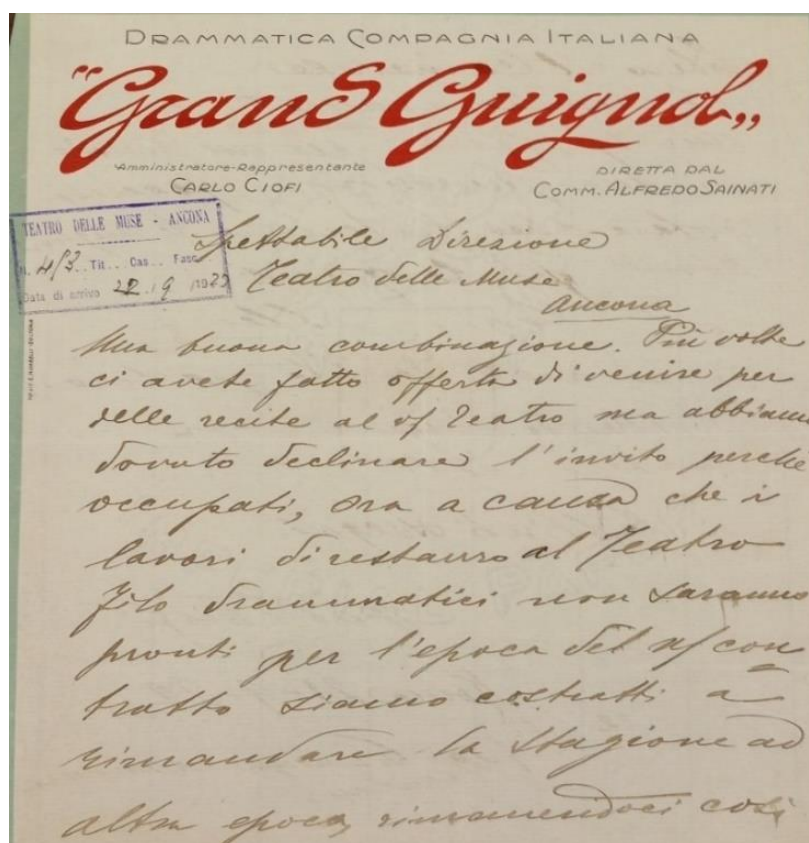 DRAMMATICA COMPAGNIA ITALIANA
"Grand Guignol„
Amministratore-Rappresentante
CARLO CIOFI
DIRETTA DAL
COMM. ALFREDO SAINATI
TEATRO DELLE MUSE - ANCONA
N. 453 Tit. Cas. Fasc.
Data di arrivo 9 192
Spettabile Direzione
Teatro delle Muse
Ancona
Una buona combinazione. Più volte
ci avete fatto offerta di venire per
delle recite al v/ Teatro ma abbiamo
dovuto declinare l'invito perché
occupati, ora a causa che i
lavori di restauro al Teatro
Filo drammatici non saranno
pronti per l'epoca del n/ con
tratto siamo costratti a
rimandare la stagione ad
altra epoca, rimanendoci così